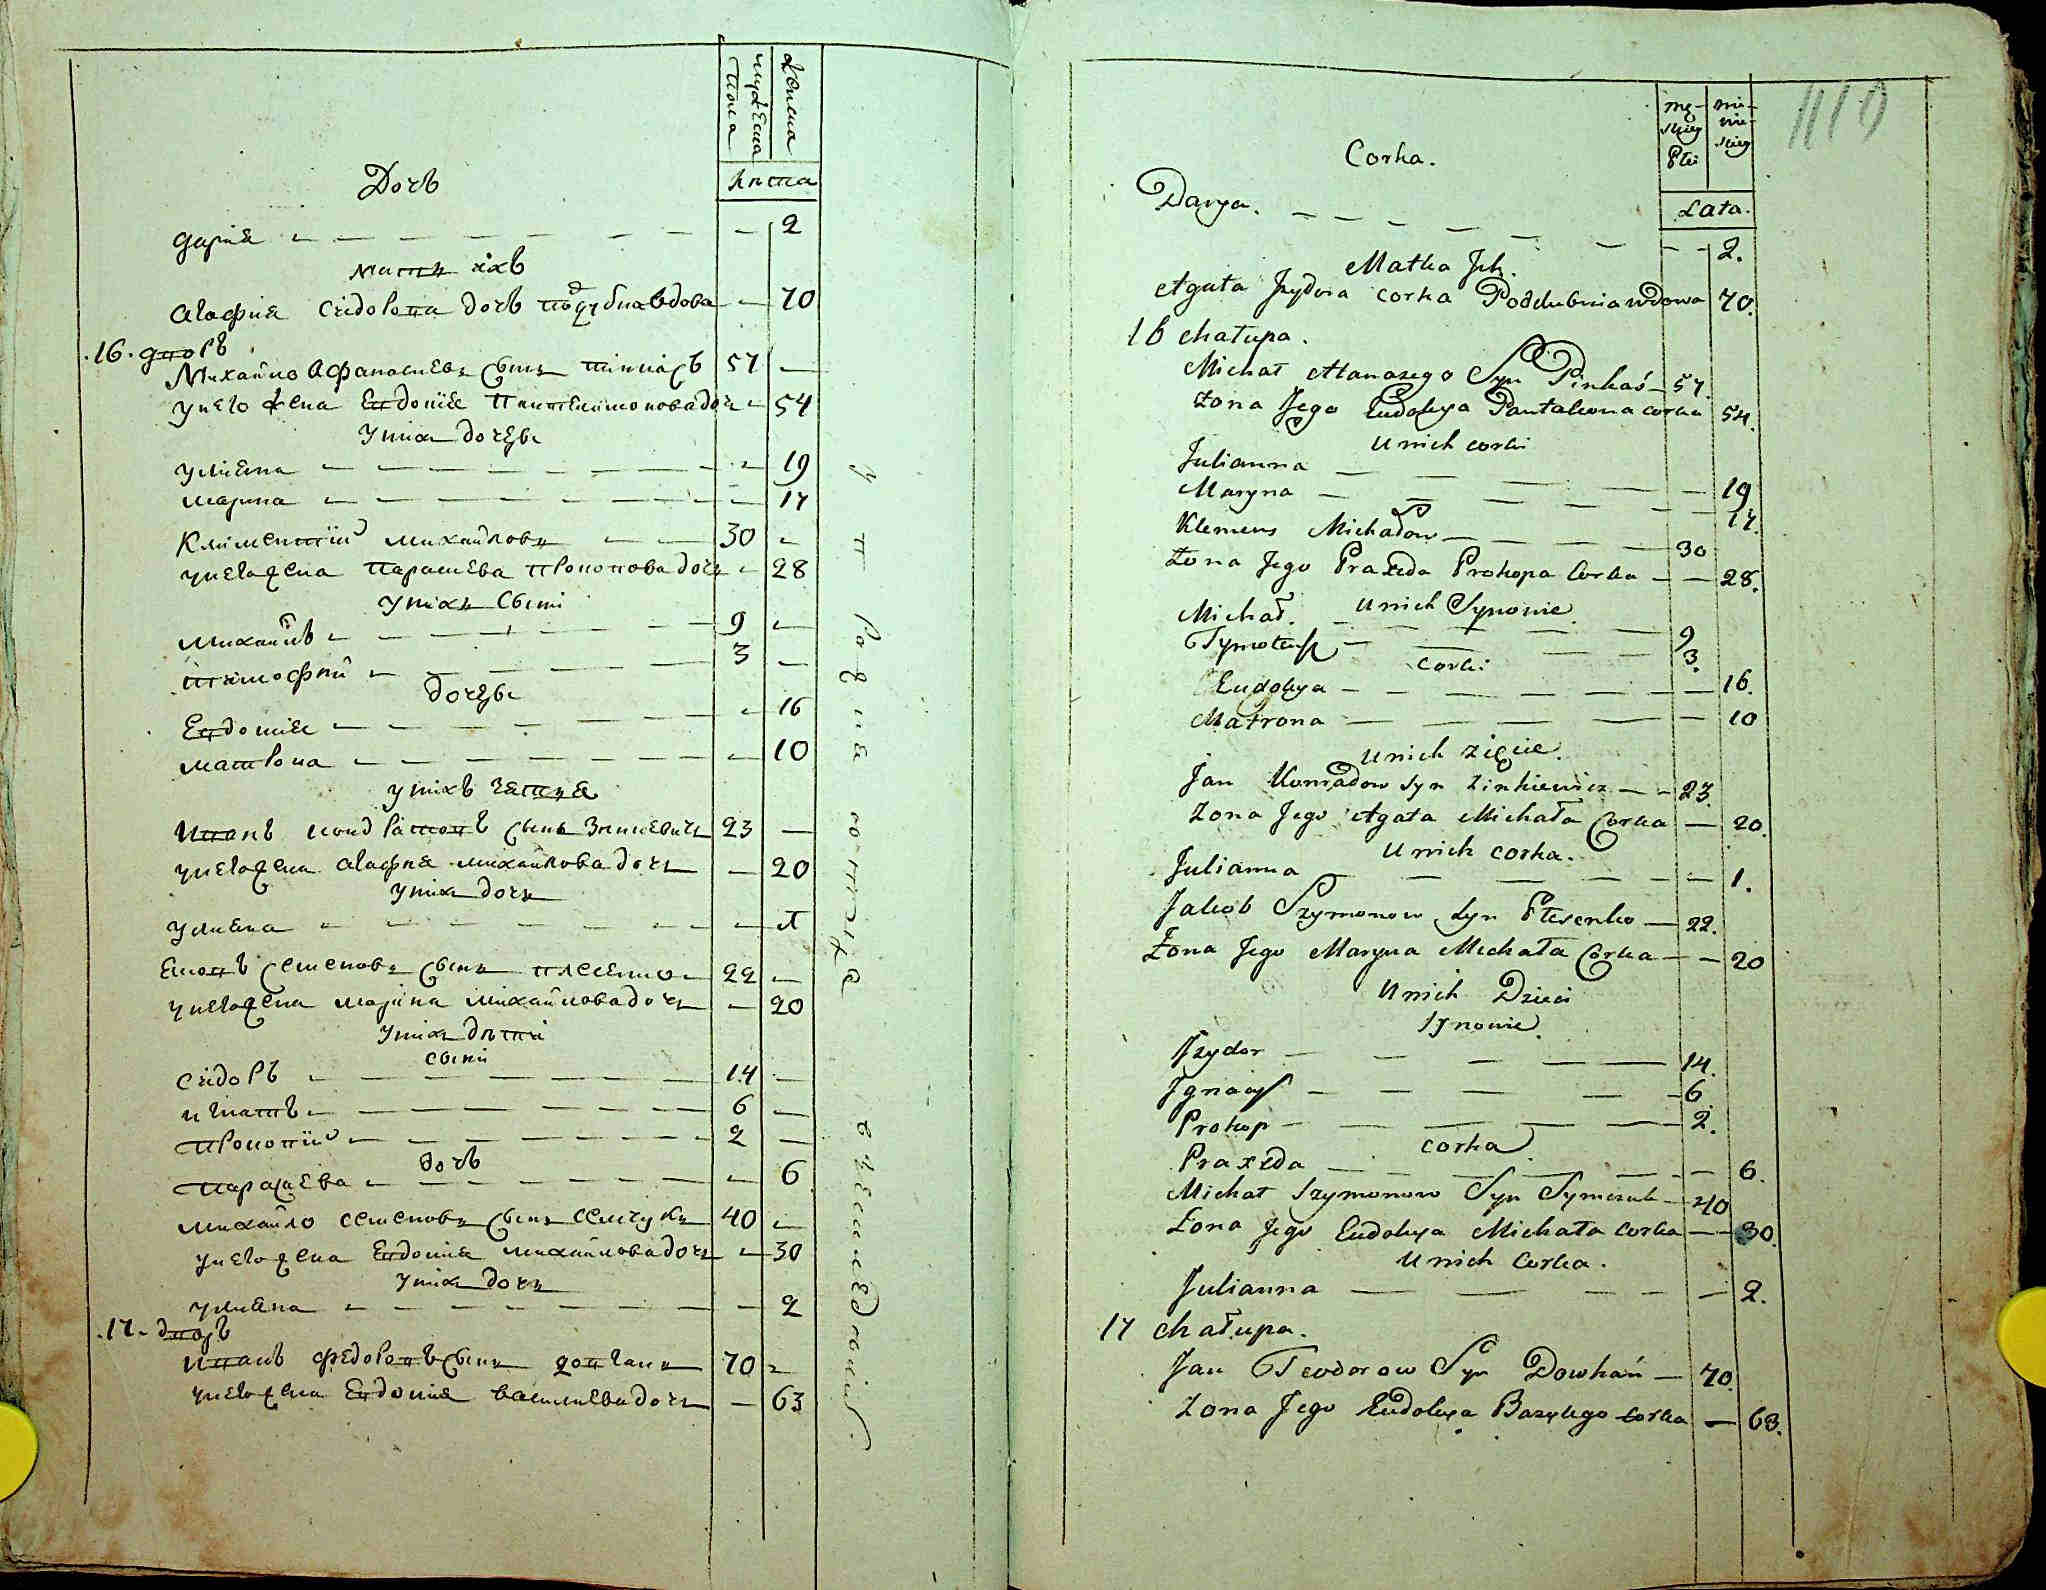 мужеска пола
женска
лѣта
Дочь
Дария 2
Мать ихъ
Агафия Сидорова дочь Поддубна вдова 70
16. дворъ
Михайло Афанасиевъ сынъ Пинкасъ 57
у него жена Евдокия Пантелимонова дочь 54
у нихъ дочери
Улияна 19
Марина 17
Климентий Михайловъ 30
у него жена Парасцева Прокопова дочь 28
у нихъ сыни
Михайлъ 9
Тимофий 3
дочери
Евдокия 16
Матрона 10
у нихъ зятия
Иванъ Кондратовъ сынъ Зинкевичъ 23
у него жена Агафия Михайлова дочь 20
у нихъ дочь
Улияна 1
Яковъ Семеновъ сынъ Плесенко 22
у него жена Марина Михайлова дочь 20
у нихъ дѣти
сыни
Сидоръ 14
Игнатъ 6
Прокопий 2
дочь
Парасцева 6
Михайло Семеновъ сынъ Семчукъ 40
у него жена Евдокия Михайлова дочь 30
у нихъ дочь
Улияна 2
17. дворъ
Иванъ Федоровъ сынъ Довганъ 70
у него жена Евдокия Василиева дочь 63
119
męskiey płci
nie-wie-skiey
Lata.
Corka.
Darya. 2.
Matka Jch.
Agata Jzydora corka Poddubnia wdowa 70.
16 chałupa.
Michał Atanazego Syn Pinkaś 57.
Żona Jego Eudokya Pantaleona corka 54.
U nich corki
Julianna 19
Maryna 17.
Klemens Michałow 30
Żona Jego Praxeda Prokopa Corka 28.
U nich Synowie.
Michał. 9
Tymoteusz 3.
corki
Eudokya 16.
Matrona 10
U nich zięcie.
Jan Konradow syn Zinkiewicz 23.
Żona Jego Agata Michała Corka 20.
U nich corka.
Julianna 1.
Jakob Szymonow Syn Plesenko 22.
Żona Jego Maryna Michała Corka 20
U nich Dzieci
Synowie.
Jzydor 14.
Jgnacy 6.
Prokop 2.
corka
Praxeda 6.
Michał Szymonow Syn Symczuk 40
Żona Jego Eudokya Michała corka 30.
U nich Corka.
Julianna 2.
17 chałupa.
Jan Teodorow Syn Dowhań 70.
Żona Jego Eudokya Bazylego corka 63.